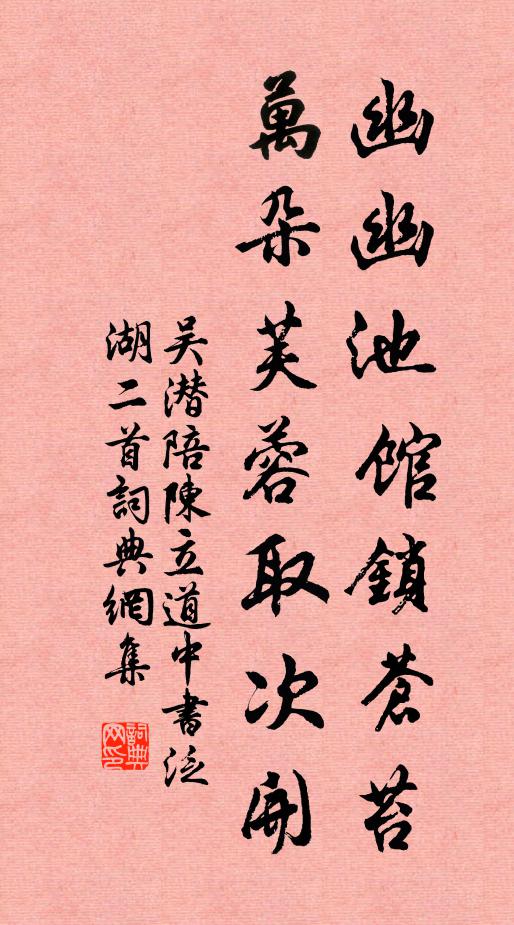 幽幽池館鎖蒼苔
萬朶芙蓉取次開
吴潜陪陳立道中書泛
湖二首詞典網集
詞典
网印